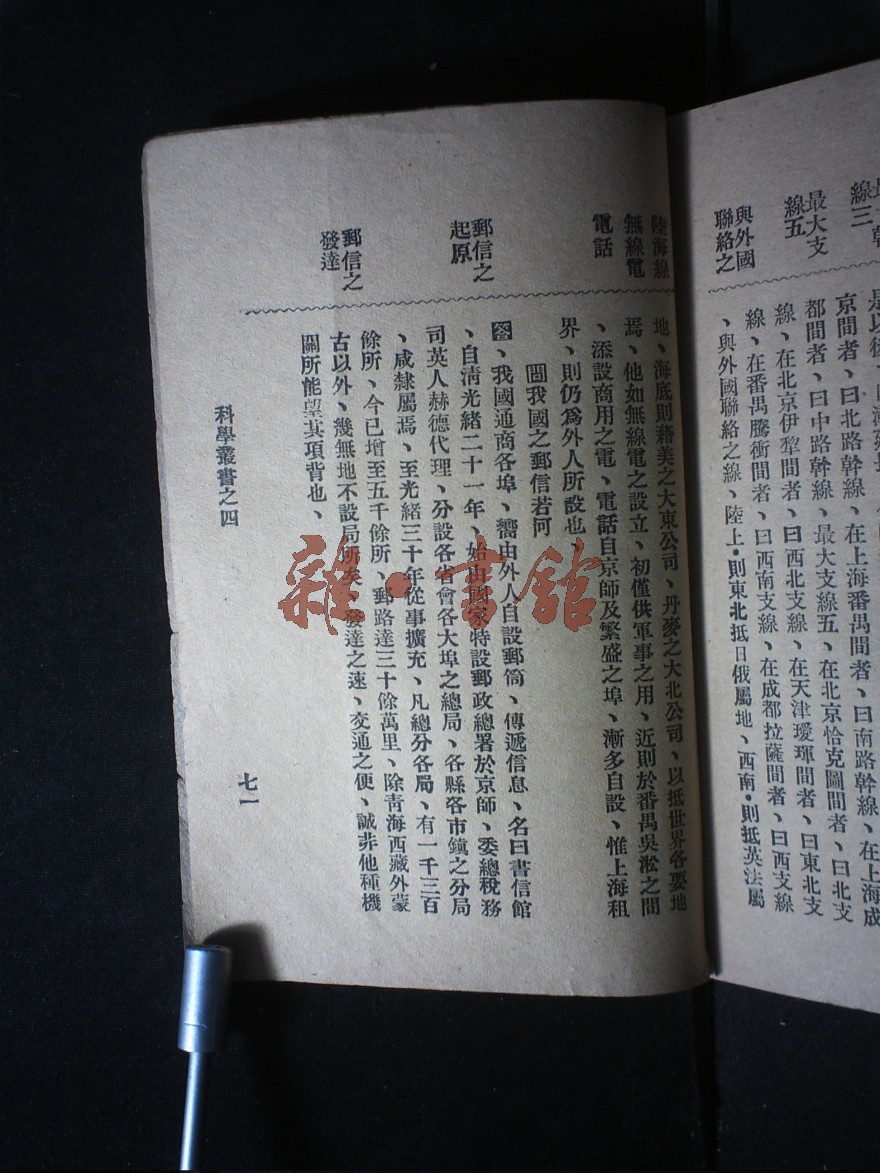 最大支
線五
與外國
聯絡之
京間者、曰北路幹線、在上海番禺間者、曰南路幹線、在上海成
都間者、曰中路幹線、最大支線五、在北京恰克圖間者、曰北支
線、在北京伊犂間者、曰西北支線、在天津璦琿間者、曰東北支
線、在番禺騰衝間者、曰西南支線、在成都拉薩間者、曰西支線
、與外國聯絡之線、陸上·則東北抵日俄屬地、西南·則抵英法屬
陸海線
無線電
電話
郵信之
起原
郵信之
發達
地、海底則藉美之大東公司、丹麥之大北公司、以抵世界各要地
焉、他如無線電之設立、初僅供軍事之用、近則於番禺吳淞之間
、添設商用之電、電話自京師及繁盛之埠、漸多自設、惟上海租
界、則仍爲外人所設也
問我國之郵信若何
答、我國通商各埠、嚮由外人自設郵筒、傳遞信息、名曰書信館
、自淸光緖二十一年、始由國家特設郵政總署於京師、委總稅務
司英人赫德代理、分設各省會各大埠之總局、各縣各市鎭之分局
、咸隸屬焉、至光緖三十年從事擴充、凡總分各局、有一千三百
餘所、今已增至五千餘所、郵路達三十餘萬里、除靑海西藏外蒙
古以外、幾無地不設局所矣、發達之速、交通之便、誠非他種機
關所能望其項背也、
科學叢書之四
七一
雜·書館